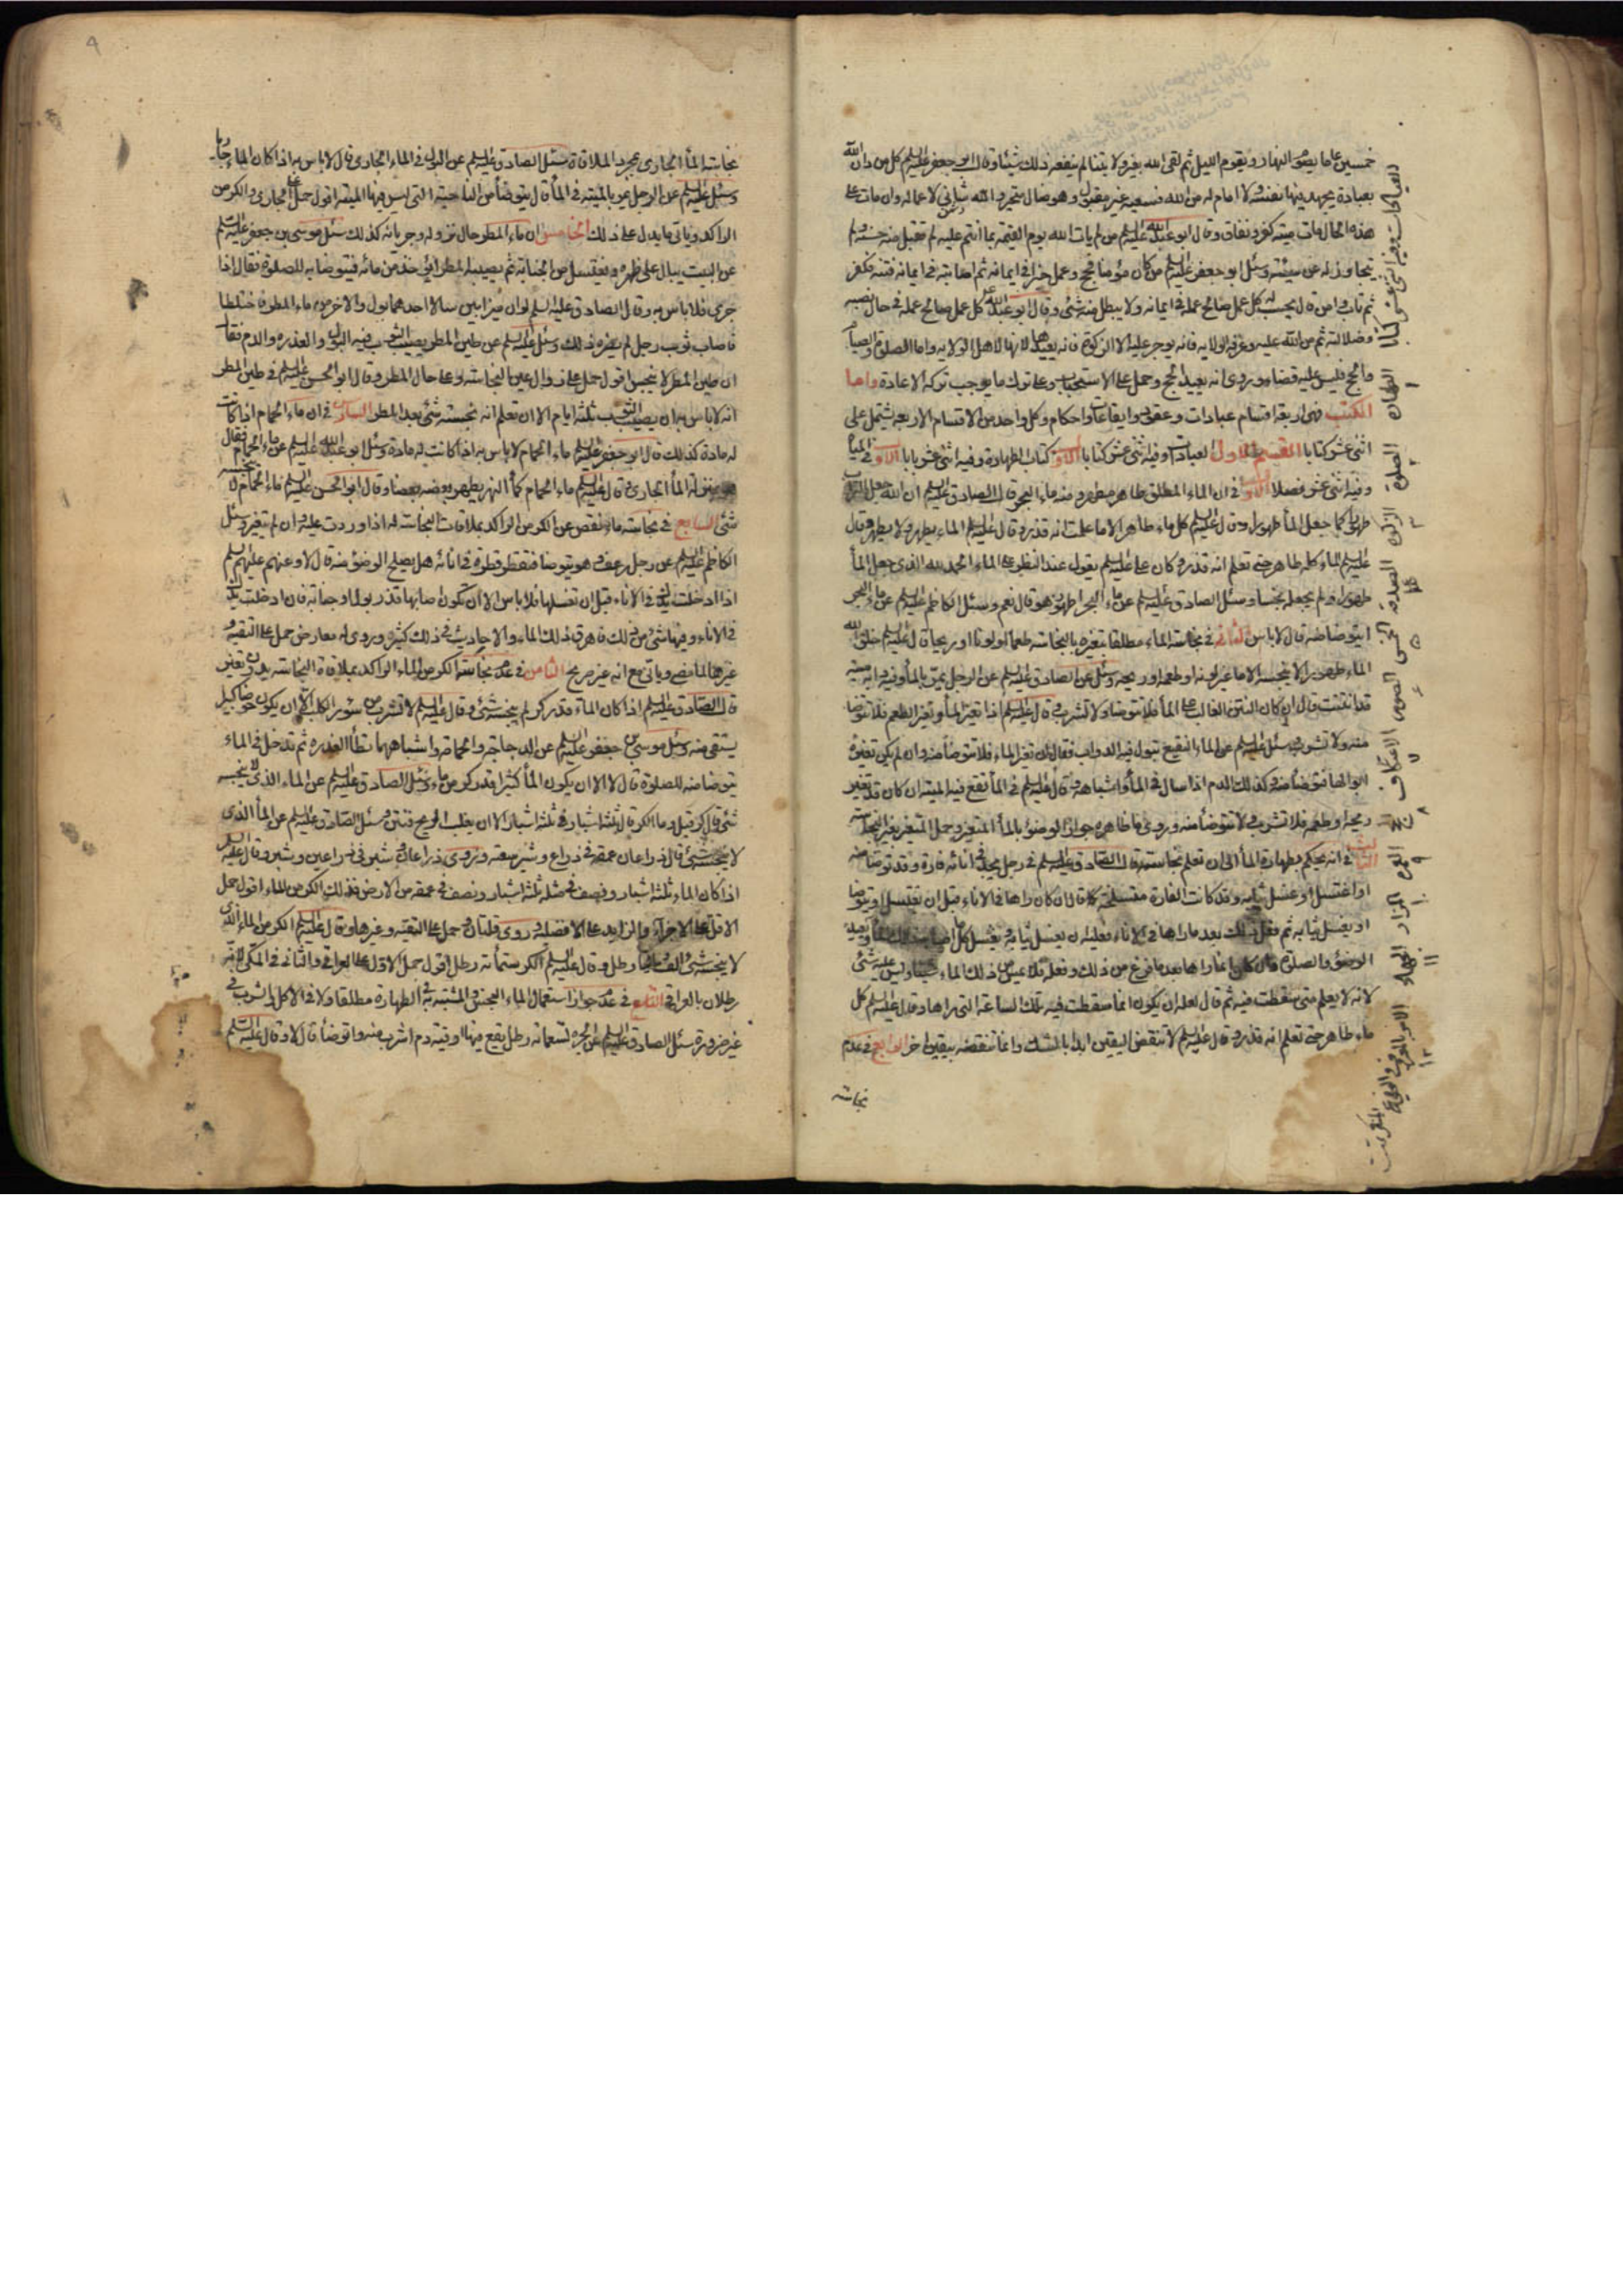 خمسين عاما يصوم النهار ويقوم الليل ثم لقى الله بغير ولايتنا لم ينفعه ذلك شيئا وقال ابو جعفر عليه السلم كل من دان الله
بعبادة يجهد فيها نفسه ولا امام له من الله فسعيه غير مقبول وهو ضال متحير والله شانئ لاعماله وان مات على
هذه الحال مات ميتة كفر ونفاق وقال ابو عبد الله عليه السلم من لم يات الله يوم القيمة بما انتم عليه لم تقبل منه حسنة ولم
يتجاوز له عن سيئة وسئل ابو جعفر عليه السلم من كان مؤمنا فحج وعمل خيرا في ايمانه ثم اصابته في ايمانه فتنة فكفر
ثم تاب وامن قال يحسب له كل عمل صالح عمله في ايمانه ولا يبطل منه شئ وقال ابو عبد الله كل عمل صالح عمله في حال نصبه
وضلالته ثم من الله عليه وعرفه الولاية فانه يوجر عليه الا الزكوة فانه يعيدها لانها لاهل الولاية واما الصلوة والصيام
والحج فليس عليه قضاء وروى انه يعيد الحج وحمل على الاستحباب وعلى ترك ما يوجب تركه الاعادة واما
الكتب فهى اربعة اقسام عبادات وعقود وايقاعات واحكام وكل واحد من الاقسام الاربعة يشتمل على
اثنى عشر كتابا القسم الاول العبادات وفيه اثنى عشر كتابا الاول كتاب الطهارة وفيه اثنى عشر بابا الاول في المياه
وفيه اثنى عشر فصلا الاول في ان الماء المطلق طاهر مطهر ومنه ماء البحر قال الصادق عليه السلم ان الله جعل التراب
طهورا كما جعل الماء طهورا وقال عليه السلم كل ماء طاهر الا ما علمت انه قذر وقال عليه السلم الماء يطهر ولا يطهر وقال
عليه السلم الماء كله طاهر حتى تعلم انه قذر وكان على عليه السلم يقول عند النظر الى الماء الحمد لله الذى جعل الماء
طهورا ولم يجعله نجسا وسئل الصادق عليه السلم عن ماء البحر اطهور هو قال نعم وسئل الكاظم عليه السلم عن ماء البحر
ايتوضا منه قال لا باس الثانى في نجاسة الماء مطلقا بتغيره بالنجاسة طعما او لونا او ريحا قال عليه السلم خلق الله
الماء طهورا لا ينجسه الا ما غير لونه او طعمه او ريحه وسئل عن الصادق عليه السلم عن الرجل يمر بالماء وفيه دابة ميتة
قد انتنت قال ان كان النتن الغالب على الماء فلا تتوضا ولا تشرب وقال عليه السلم اذا تغير الماء وتغير الطعم فلا تتوضا
منه ولا تشرب وسئل عليه السلم عن الماء النقيع تبول فيه الدواب فقال ان تغير الماء فلا تتوضأ منه وان لم يكن تغيره
ابوالها فتوضأ منه وكذلك الدم اذا سال في الماء واشباهه وقال عليه السلم في الماء تقع فيه الميتة ان كان قد تغير
ريحه او طعمه فلا تشرب ولا تتوضأ منه وروى ما ظاهره جواز الوضوء بالماء المتغير وحمل المتغير بغير النجاسة
الثالث في انه يحكم بطهارة الماء الى ان تعلم نجاسته قال الصادق عليه السلم في رجل يجد في انائه فارة وقد توضا منه
او اغتسل او غسل ثيابه وقد كانت الفارة متسلخة قال ان كان راها في الاناء قبل ان يغتسل او يتوضا
او يغسل ثيابه ثم فعل ذلك بعد ما راها في الاناء فعليه ان يغسل ثيابه ويغسل كل ما اصابه ذلك الماء ويعيد
الوضوء والصلوة وان كان انما راها بعد ما فرغ من ذلك وفعله فلا يمس من ذلك الماء شيئا وليس عليه شئ
لانه لا يعلم متى سقطت فيه ثم قال لعله ان يكون انما سقطت فيه تلك الساعة التى راها وقال عليه السلم كل
ماء طاهر حتى تعلم انه قذر وقال عليه السلم لا تنقض اليقين ابدا بالشك وانما تنقضه بيقين اخر الرابع في عدم
نجاسة
الطهارة
الصلوة
الزكوة
الخمس
الصوم
الاعتكاف
الحج
المزار
الجهاد
نجاسة الماء الجارى بمجرد الملاقاة سئل الصادق عليه السلم عن البول في الماء الجارى قال لا باس به اذا كان الماء جاريا
وسئل عليه السلم عن الرجل يمر بالميتة في الماء قال يتوضأ من الناحية التى ليس فيها الميتة اقول حمل على الجارى والكر من
الراكد وياتى ما يدل على ذلك الخامس ان ماء المطر حال نزوله وجريانه كذلك سئل موسى بن جعفر عليه السلم
عن البيت يبال على ظهره ويغتسل من الجنابة ثم يصيبه المطر ايؤخذ من مائه فيتوضا به للصلوة فقال اذا
جرى فلا باس به وقال الصادق عليه السلم لو ان ميزابين سالا احدهما بول والاخر ماء المطر فاختلطا
فاصاب ثوب رجل لم يضره ذلك وسئل عليه السلم عن طين المطر يصيب الثوب فيه البول والعذرة والدم فقال
ان طين المطر لا ينجس اقول حمل على زوال عين النجاسة وعلى حال المطر وقال ابو الحسن عليه السلم في طين المطر
انه لا باس به ان يصيب الثوب ثلثة ايام الا ان تعلم انه نجسته شئ بعد المطر السادس في ان ماء الحمام اذا كانت
له مادة كذلك قال ابو جعفر عليه السلم ماء الحمام لا باس به اذا كانت له مادة وسئل ابو عبد الله عليه السلم عن ماء الحمام فقال
هو بمنزلة الماء الجارى وقال عليه السلم ماء الحمام كماء النهر يطهر بعضه بعضا وقال ابو الحسن عليه السلم ماء الحمام لا ينجسه
شئ السابع في نجاسة ما نقص عن الكر من الراكد بملاقات النجاسة له اذا وردت عليه وان لم يتغير وسئل
الكاظم عليه السلم عن رجل رعف وهو يتوضا فتقطر قطرة في انائه هل يصلح الوضوء منه قال لا وعنهم عليهم السلم
اذا ادخلت يدك في الاناء قبل ان تغسلها فلا باس الا ان تكون اصابها قذر بول او جنابة فان ادخلت يدك
في الاناء وفيها شئ من ذلك فاهرق ذلك الماء والاحاديث في ذلك كثيرة وروى له معارض حمل على التقية و
غيرها لما مضى وياتى مع انه غير صريح الثامن في عدم نجاسة الكر من الماء الراكد بملاقاة النجاسة بدون تغير
قال الصادق عليه السلم اذا كان الماء قدر كر لم ينجسه شئ وقال عليه السلم لا تشرب من سؤر الكلب الا ان يكون حوضا كبيرا
يستقى منه وسئل موسى بن جعفر عليه السلم عن الدجاجة والحمامة واشباههما تطأ العذرة ثم تدخل في الماء
يتوضا منه للصلوة قال لا الا ان يكون الماء كثيرا قدر كر من ماء وسئل الصادق عليه السلم عن الماء الذى لا ينجسه
شئ قال كر قيل وما الكر قال ثلثة اشبار في ثلثة اشبار الا ان يغلب الريح فتنتن وسئل الصادق عليه السلم عن الماء الذى
لا ينجسه شئ قال ذراعان عمقه في ذراع وشبر سعته وروى ذراعان وشبر في ذراعين وشبر وقال عليه السلم
اذا كان الماء ثلثة اشبار ونصف في مثله ثلثة اشبار ونصف في عمقه من الارض فذلك الكر من الماء اقول حمل
الاقل على الاجزاء والزايد على الافضلية وروى قلتان وحمل على التقية وغيرها وقال عليه السلم الكر من الماء الذى
لا ينجسه شئ الف ومائتا رطل وقال عليه السلم الكر ستمأة رطل اقول حمل الاول على العراقى والثانى في المكى لانه
رطلان بالعراقى التاسع في عدم جواز استعمال الماء النجس والمشتبه في الطهارة مطلقا ولا في الاكل والشرب في
غير ضرورة سئل الصادق عليه السلم عن الجرة تسع مائة رطل يقع فيها اوقية دم اشرب منه واتوضأ قال لا وقال عليه السلم